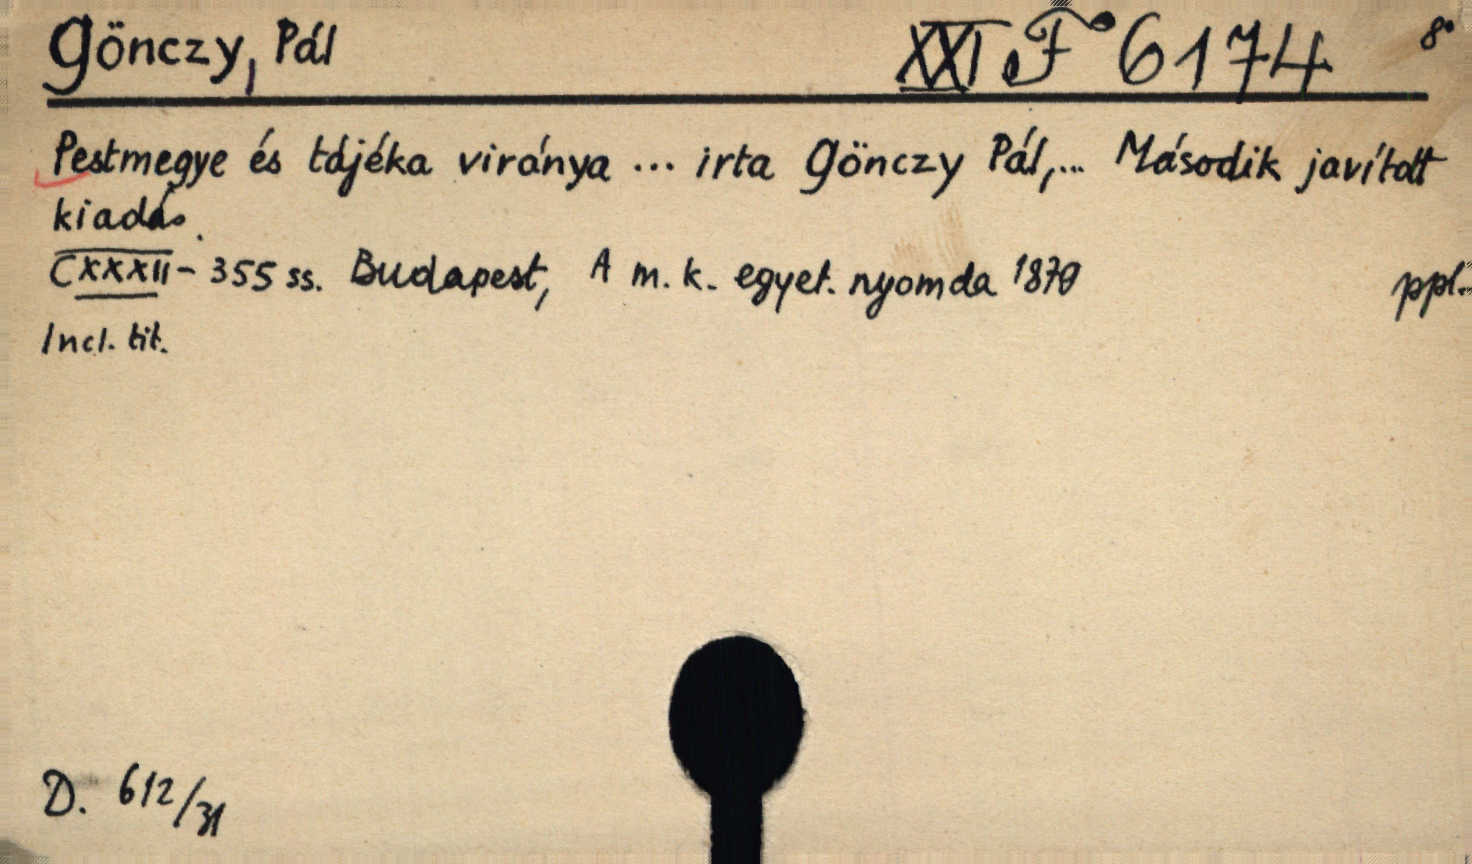 Gönczy, Pál XXI F 6174 8°
Pestmegye és tájéka viránya ... irta Gönczy Pál,... Második javított
kiadás.
CXXXII - 355 ss. Budapest, A m. k. egyet. nyomda 1879 ppl.
Incl. tit.
D. 612/31